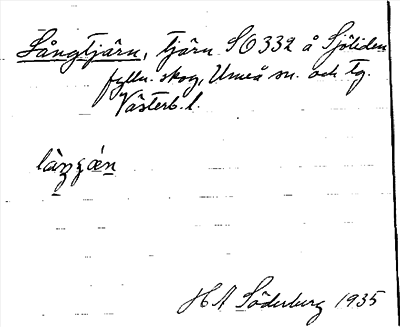 Långtjärn, tjärn SO 332 å Sjöliden
fylln. skog, Umeå sn. och tg.
Västerb. l.
H A Söderberg 1935